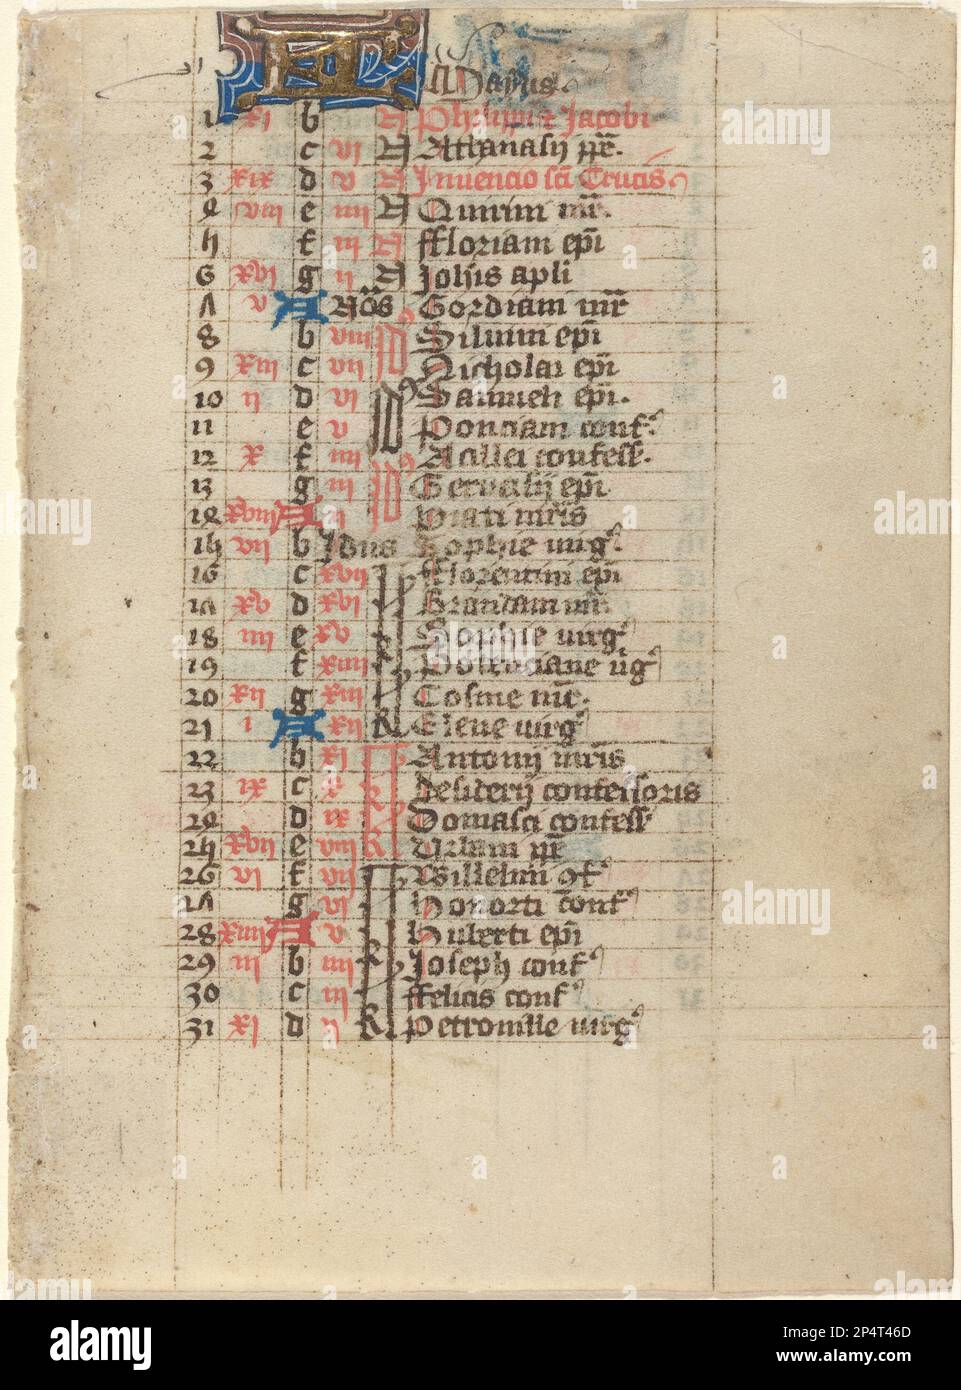 Mayus.
1 xi b N Philippi et Jacobi
2 c vi N Athanasij pp̄.
3 xix d v N Inuencio sc̄i Crucis
4 viii e iiii N Quirini mr̄.
5 f iii N ffloriani ep̄i
6 xvi g ii N Joh̄is apli
7 v A Nōs Gordiani mr̄
8 b viii Siluini ep̄i
9 xiii c vii Nicholai ep̄i
10 ii d vi ep̄i.
11 e v Ponciani conf.
12 x f iiii Acillei confess.
13 g iii Geruasij ep̄i
14 xviii A ii mr̄is
15 vii b Idus Sophie uirg.
16 c xvii fflorentini ep̄i
17 xv d xvi Brandani
18 iiii e xv Sophie uirg
19 f xiiii Potenciane ūg
20 xii g xiii Cosme mr̄.
21 i A xii Elene uirg
22 b xi Antonij mr̄is
23 ix c x Desiderij confessoris
24 d ix Domasci confess
25 xvii e viii Urbani pp̄
26 vi f vii Willelmi 9f
27 g vi Honorti conf
28 xiiii A v Huberti ep̄i
29 iii b iiii Joseph conf
30 c iii ffelicis conf
31 xi d ii Petronille uirg
alamy
Image ID: 2P4T46D
www.alamy.com